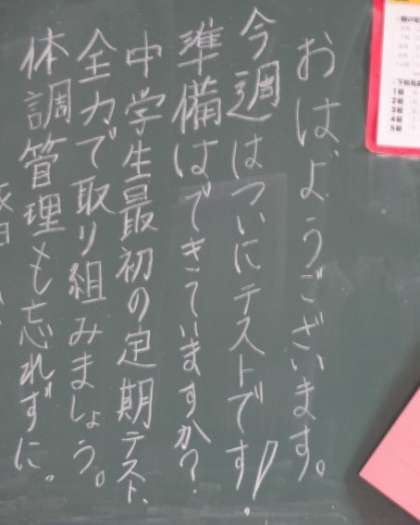 おはようございます。
今週はついにテストです!!
準備はできていますか?
中学生最初の定期テスト、
全力で取り組みましょう。
体調管理も忘れずに。
1組
2組
3組
4組
5組